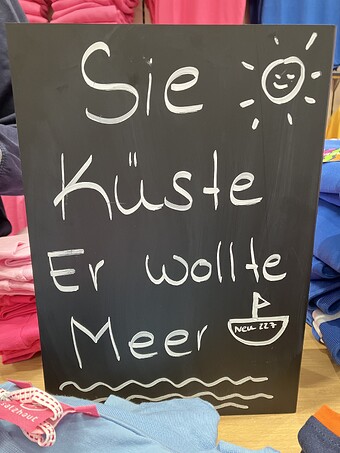 Sie
Küste
Er wollte
Meer
Neu 227
salzhaut